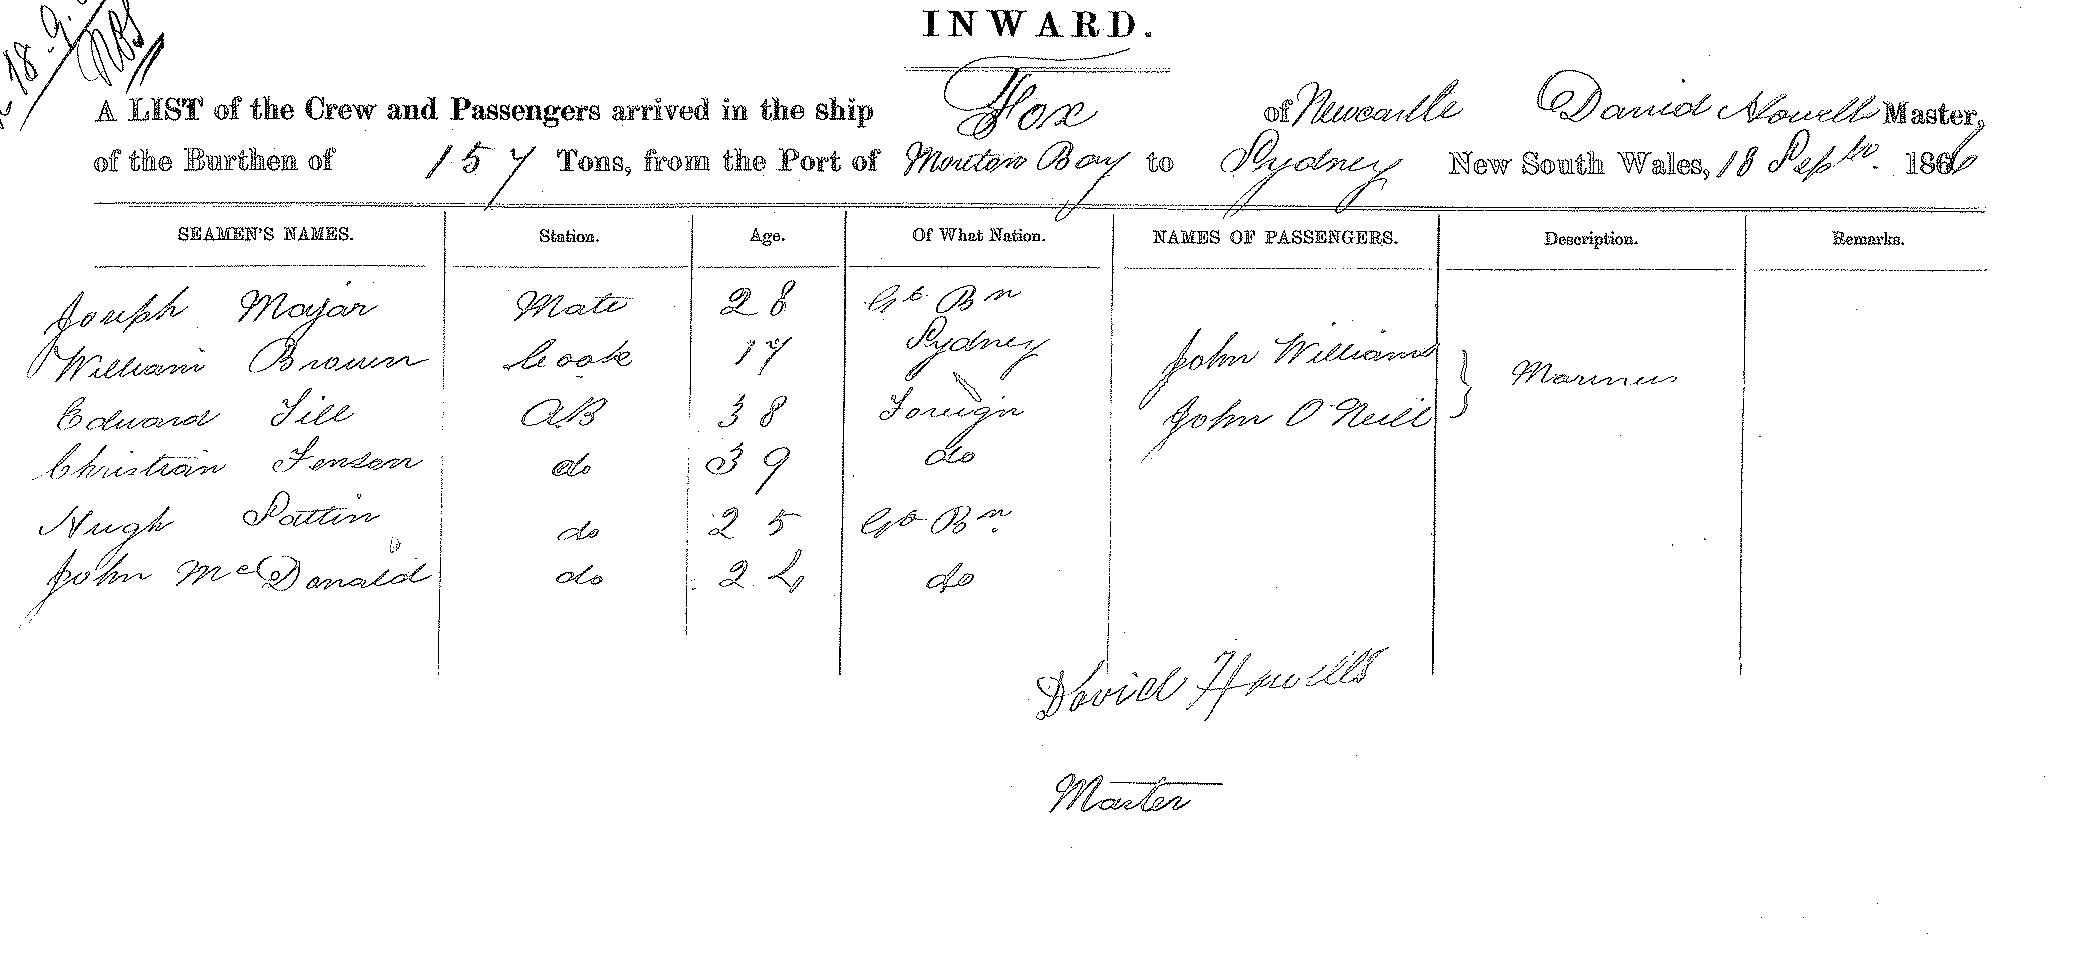 18.9.
INWARD.
A LIST of the Crew and Passengers arrived in the ship Fox of Newcastle David Howell Master,
of the Burthen of 157 Tons, from the Port of Moreton Bay to Sydney New South Wales, 18 Septbr. 1866
SEAMEN'S NAMES. Station. Age. Of What Nation. NAMES OF PASSENGERS. Description. Remarks.
Joseph Majar Mate 28 Gt Bn
William Brown Cook 17 Sydney John Williams } Mariners
Edward Till AB 38 Foreign John O'Neill
Christian Jenson do 39 do
Hugh Pattin do 25 Gt Bn
John McDonald do 24 do
David Howells
Master